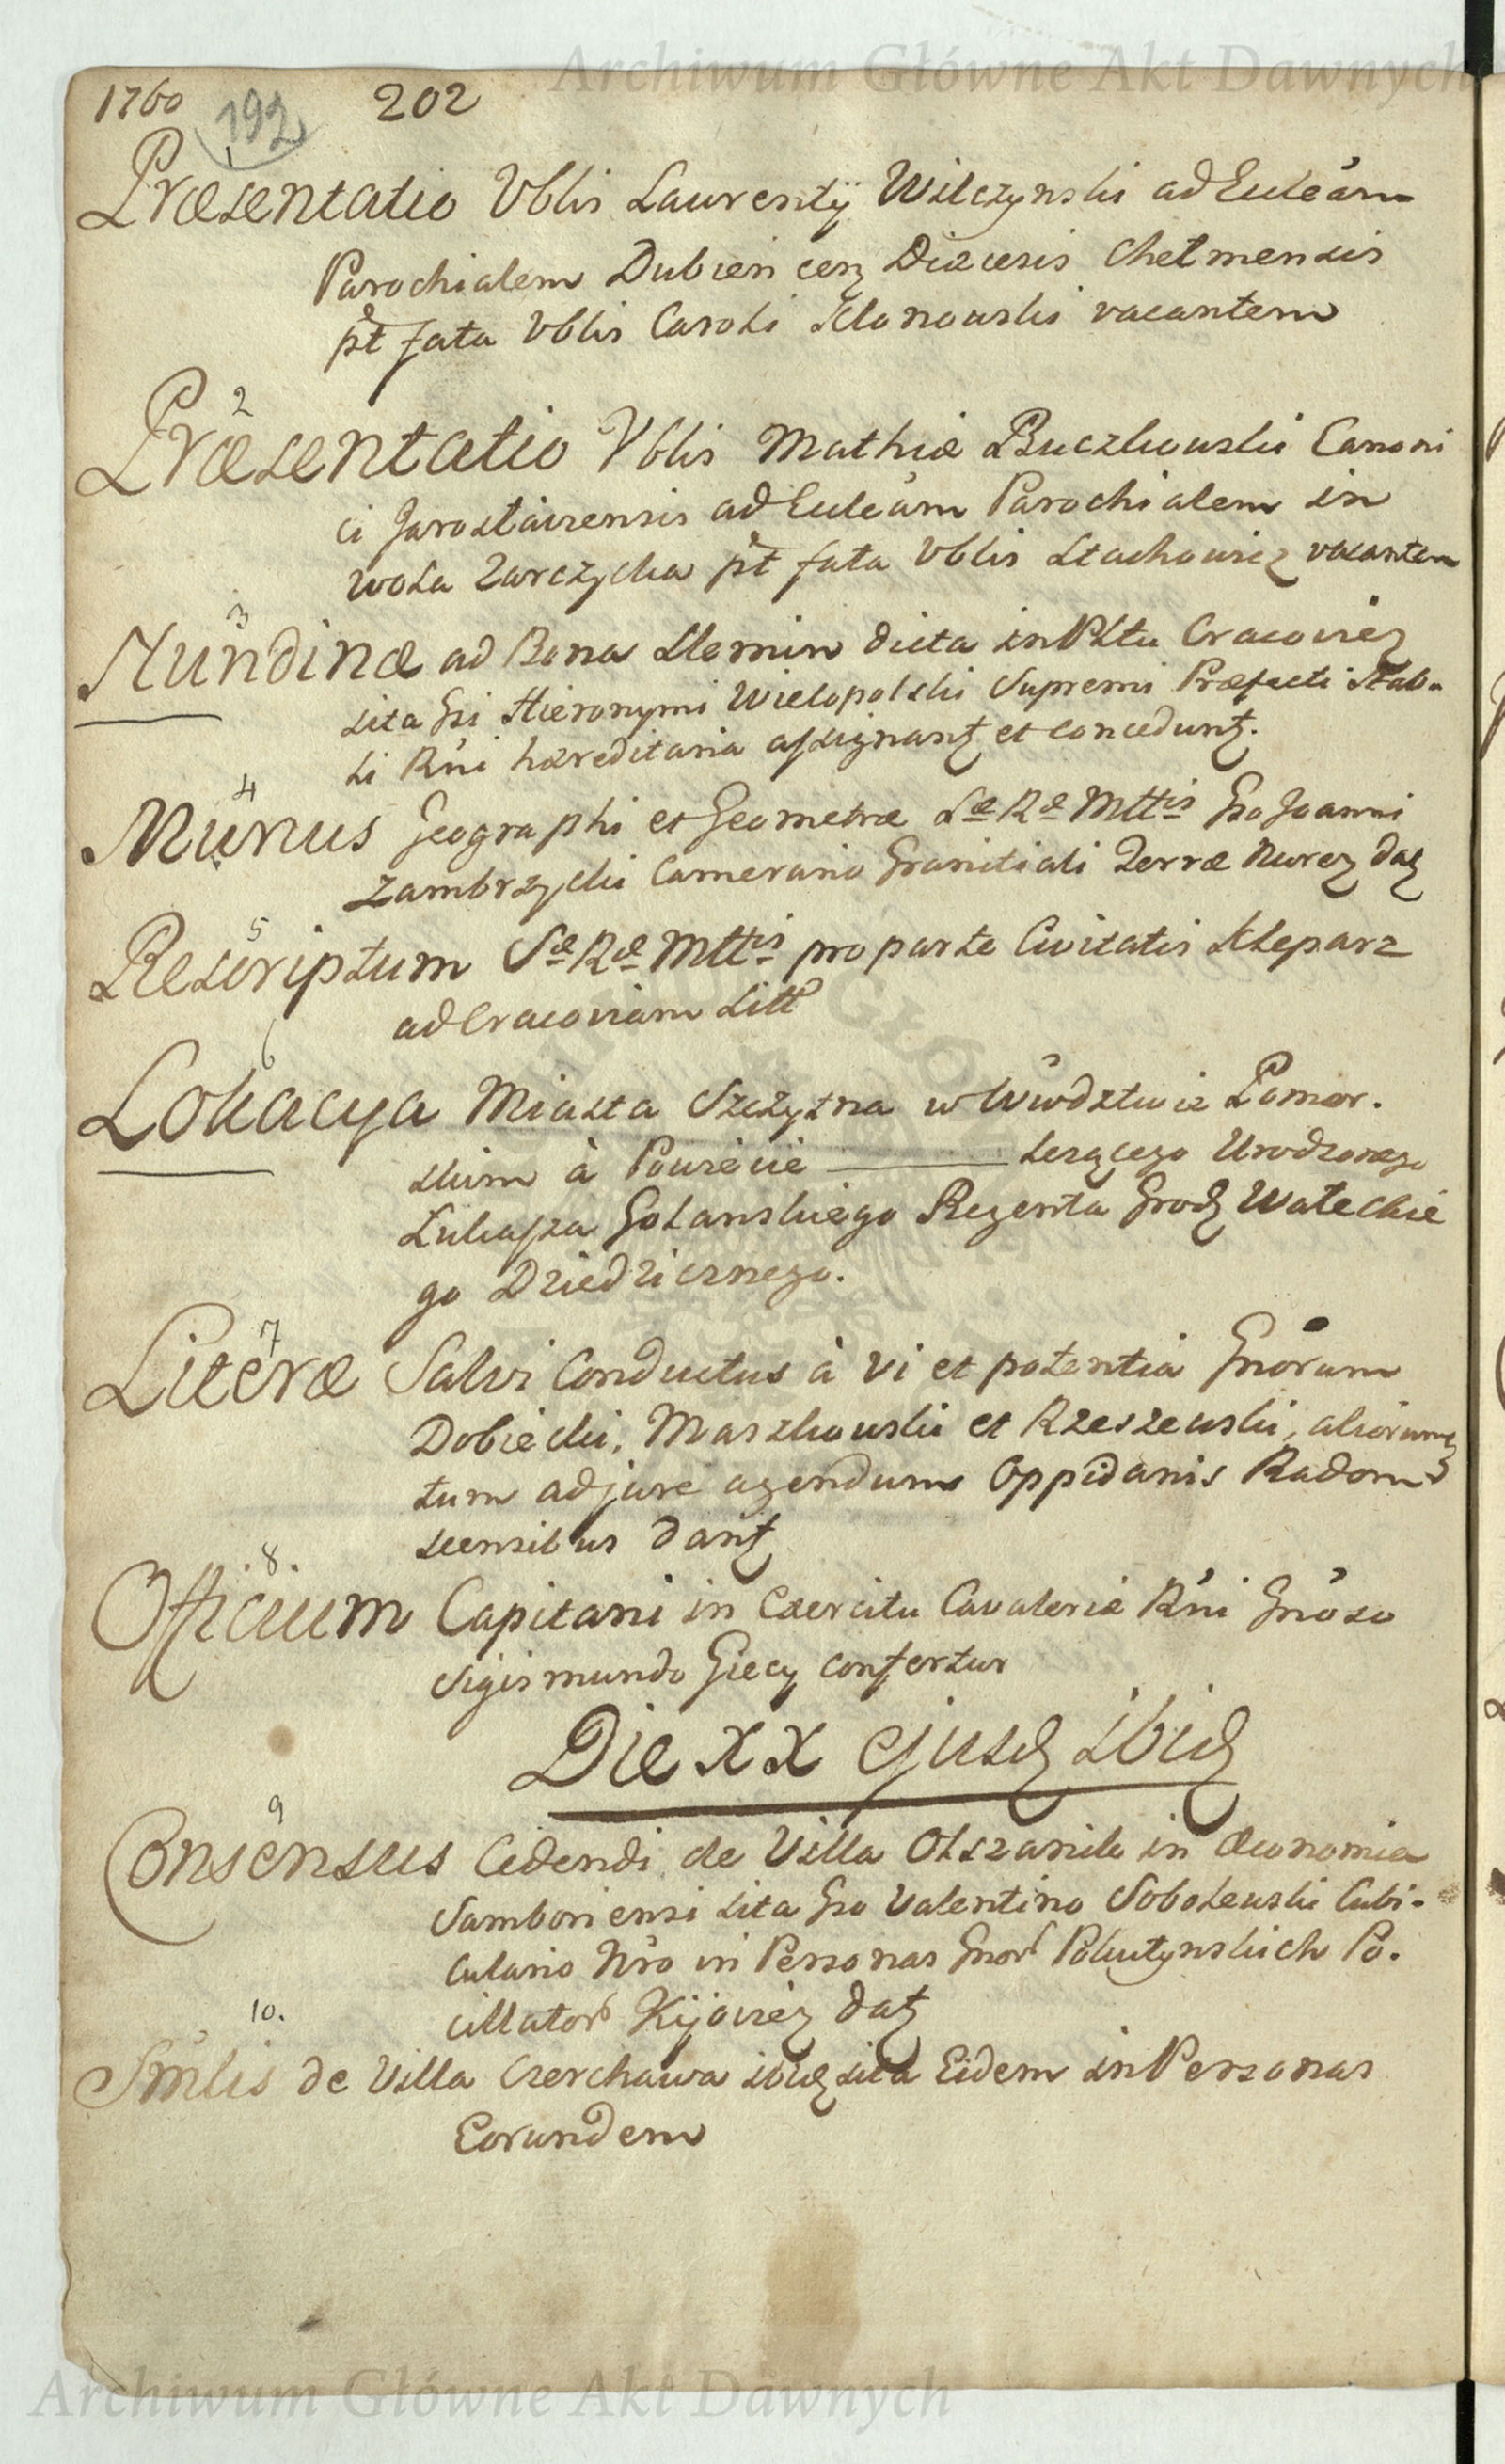 Archiwum Główne Akt Dawnych
1760 192 202
1
Præsentatio Vblis Laurentÿ Wilczynski ad Eccleãm
Parochialem Dubien cen Diæcesis Chelmensis
pt fata Vblis Caroli Klonowski vacantem
2
Præsentatio Vblis Mathiæ Buczkowski Canoni
ci Jaroslaviensis ad Eccleãm Parochialem in
Wola Zarczycka pt fata Vblis Stachowicz vacantem
3
Nundinæ ad Bona Slemin dicta in Pltu Cracovieñ
sita Gsi Hieronymi Wielopolski Supremi Præfecti Stab-
li Rñi hæreditaria assignant et concedunt.
4
Munus Geographi et Geometræ Sæ Ræ Mttis Gso Joanni
Zambrzycki Camerario Granitiali Terræ Nureñ dat
5
Rescriptum Sæ Ræ Mttis pro parte Civitatis Kleparz
ad Cracoviam Litt
6
Lokacya Miasta Szczytna w Wwdztwie Pomor.
skim à Powiecie lezącego Urodzonego
Łukasza Golanskiego Regenta Grodz Wałeckie
go Dziedzicznego.
7
Literæ Salvi Conductus à vi et potentia Gnorum
Dobiecki, Maszkowski et Rzeszewski, aliorumq
tum ad jure agendum Oppidanis Radom
scensibus dant
8.
Officium Capitani in Exercitu Cavaleriæ Rñi Gnoso
Sigismundo Giecy confertur
Die XX ejusd ibid
9
Consensus Cedendi de Villa Olszanik in Œconomia
Samboriensi sita Gso Valentino Sobolewski Cubi-
culario Nro in Personas Gnor Pokutynskich Po.
cillator Kijovieñ dat
10.
Smlis de Villa Czerchawa ibid sita Eidem in Personas
Eorundem
Archiwum Główne Akt Dawnych